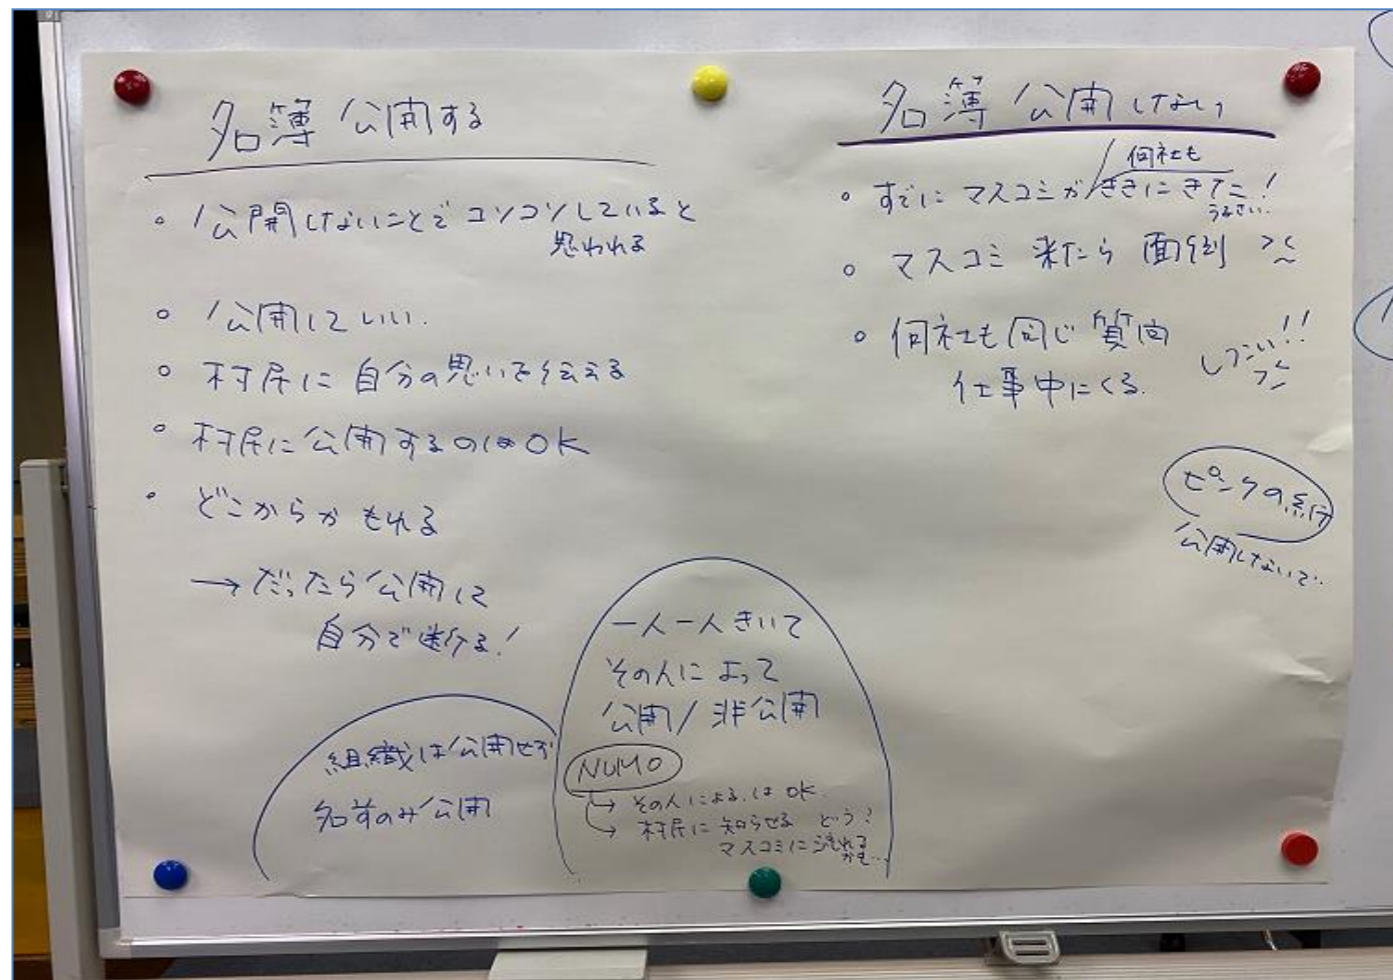 名簿 公開する
・公開しないことでコソコソしていると
思われる
・公開していい.
・村民に 自分の思いを伝える
・村民に公開するのはOK
・どこからか もれる
→だったら公開して
自分で避ける!
組織は公開せず
名前のみ公開
一人一人きいて
その人によって
公開/非公開
NUMO
→その人による.はOK.
→村民に知らせる どう?
マスコミに流れる
かも…
名簿 公開しない
何社も
・すでに マスコミが ききに きてた!
うるさい..
・マスコミ 来たら 面倒
・何社も同じ質問
仕事中にくる.
しつこい!!
ピンクの紙
公開しないで..